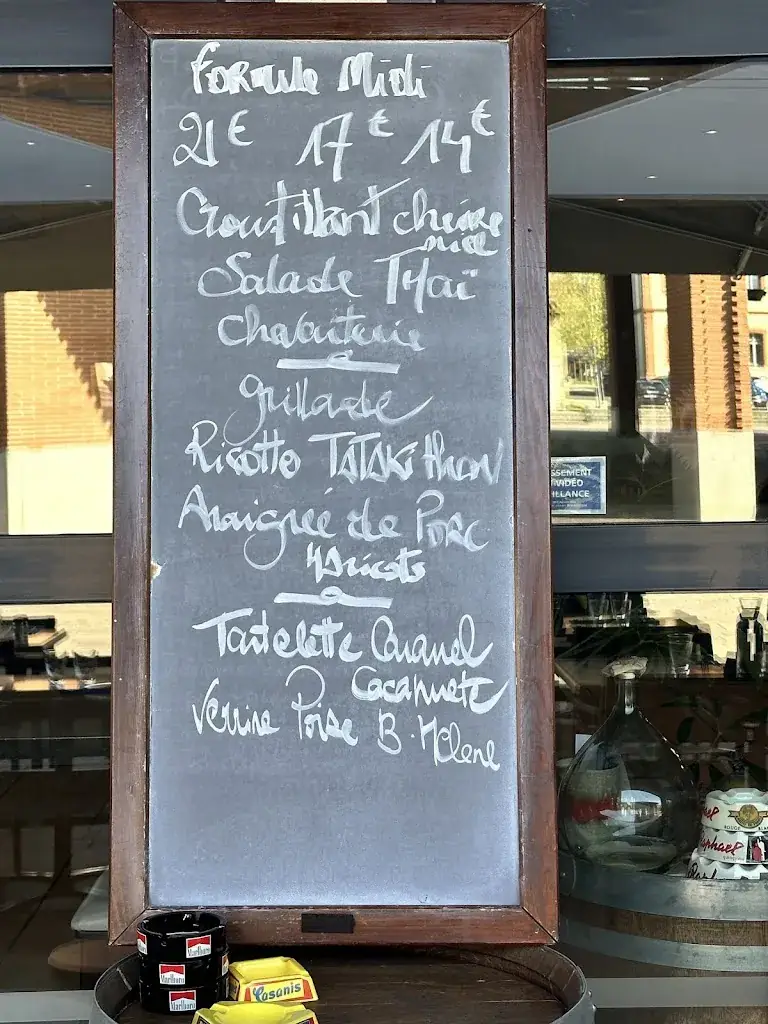 Formule Midi
21€ 17€ 14€
Croustillant chèvre
miel
Salade Thaï
Charcuterie
Grillade
Risotto TATAKi thon
Araignée de Porc
Haricots
Tartelette Caramel
Cacahuete
Verrine Poire B. Helene
SSEMENT
VIDÉO
ILLANCE
Marlboro
Marlboro
Marlboro
Casanis
Raphael